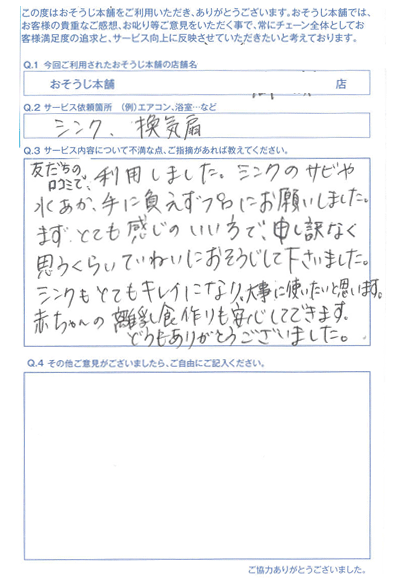 この度はおそうじ本舗をご利用いただき、ありがとうございます。おそうじ本舗では、
お客様の貴重なご感想、お叱り等ご意見をいただく事で、常にチェーン全体としてお
客様満足度の追求と、サービス向上に反映させていただきたいと考えております。
Q.1 今回ご利用されたおそうじ本舗の店舗名
おそうじ本舗 店
Q.2 サービス依頼箇所 (例)エアコン、浴室…など
シンク、換気扇
Q.3 サービス内容について不満な点、ご指摘があれば教えてください。
友だちの
口コミで、利用しました。シンクのサビや
水あか、手に負えずプロにお願いしました。
まず、とても感じのいい方で、申し訳なく
思うくらいていねいにおそうじして下さいました。
シンクもとてもキレイになり、大事に使いたいと思います。
赤ちゃんの離乳食作りも安心してできます。
どうもありがとうございました。
Q.4 その他ご意見がございましたら、ご自由にご記入ください。
ご協力ありがとうございました。